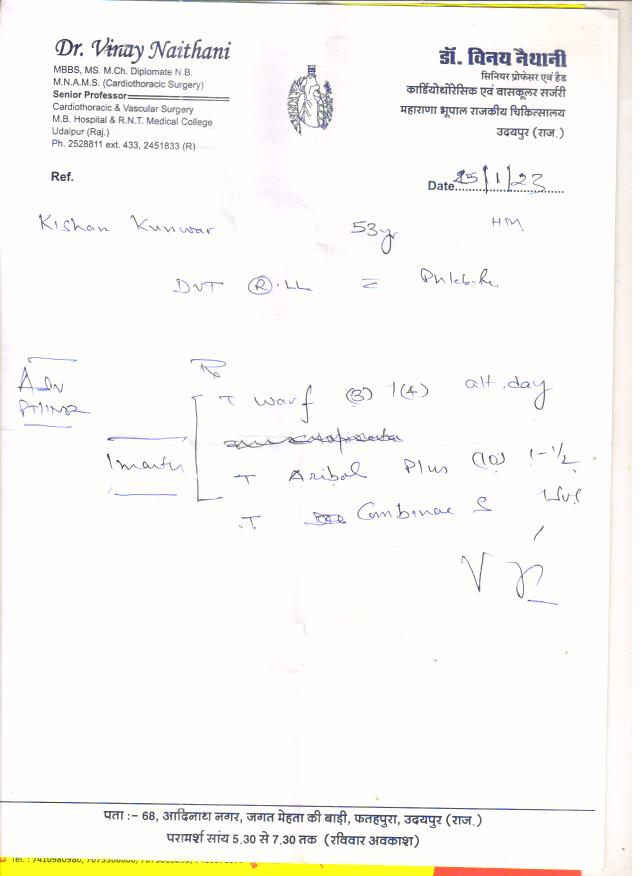 Dr. Vinay Naithani
MBBS, MS. M.Ch. Diplomate N.B.
M.N.A.M.S. (Cardiothoracic Surgery)
Senior Professor
Cardiothoracic & Vascular Surgery
M.B. Hospital & R.N.T. Medical College
Udaipur (Raj.)
Ph. 2528811 ext. 433, 2451833 (R)
डॉ. विनय नैथानी
सिनियर प्रोफेसर एवं हैड
कार्डियोथोरेसिक एवं वासकूलर सर्जरी
महाराणा भूपाल राजकीय चिकित्सालय
उदयपुर (राज.)
Ref.
Date 25/1/23
Kishan Kunwar 53yr
DVT R.LL
Adv
PT/INR
1 month
Rx
T Warf (3) 1(4) alt.day
T Plus (10) 1-1/2
T
पता :- 68, आदिनाथ नगर, जगत मेहता की बाड़ी, फतहपुरा, उदयपुर (राज.)
परामर्श सांय 5.30 से 7.30 तक (रविवार अवकाश)
Tel. : 7410980980,